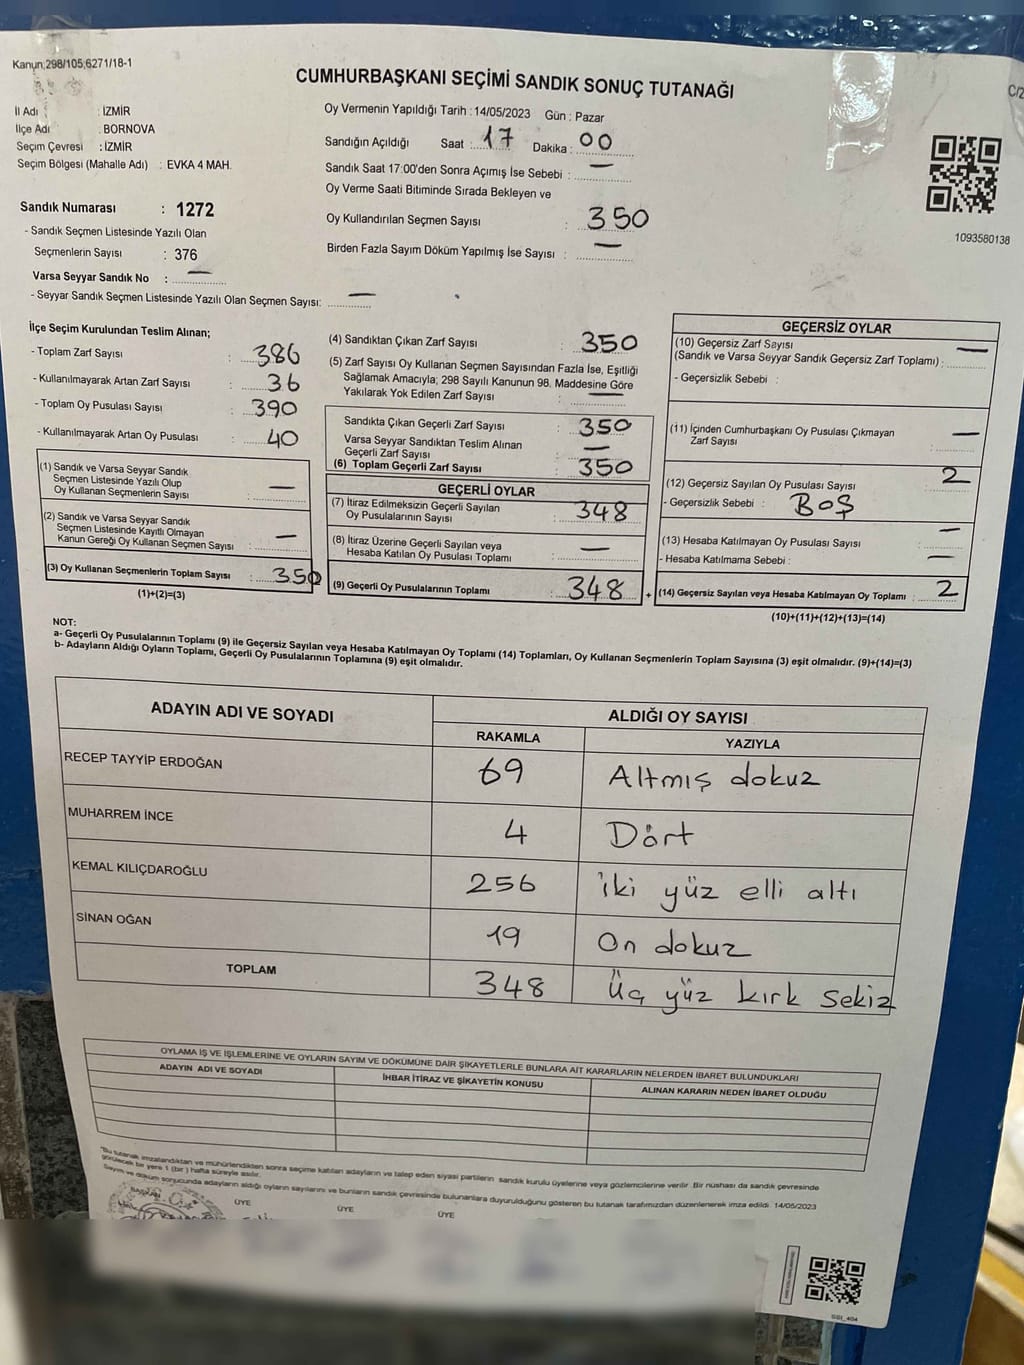 Kanun;298/105;6271/18-1
CUMHURBAŞKANI SEÇİMİ SANDIK SONUÇ TUTANAĞI
C/2
İl Adı : İZMİR
İlçe Adı : BORNOVA
Seçim Çevresi : İZMİR
Seçim Bölgesi (Mahalle Adı) : EVKA 4 MAH.
Oy Vermenin Yapıldığı Tarih : 14/05/2023 Gün : Pazar
Sandığın Açıldığı Saat : 17 Dakika : 00
Sandık Saat 17:00'den Sonra Açımış İse Sebebi : —
Oy Verme Saati Bitiminde Sırada Bekleyen ve
Oy Kullandırılan Seçmen Sayısı : 350
Birden Fazla Sayım Döküm Yapılmış İse Sayısı : —
1093580138
Sandık Numarası : 1272
- Sandık Seçmen Listesinde Yazılı Olan
Seçmenlerin Sayısı : 376
Varsa Seyyar Sandık No : —
- Seyyar Sandık Seçmen Listesinde Yazılı Olan Seçmen Sayısı: —
İlçe Seçim Kurulundan Teslim Alınan;
- Toplam Zarf Sayısı : 386
- Kullanılmayarak Artan Zarf Sayısı : 36
- Toplam Oy Pusulası Sayısı : 390
- Kullanılmayarak Artan Oy Pusulası : 40
(1) Sandık ve Varsa Seyyar Sandık
Seçmen Listesinde Yazılı Olup
Oy Kullanan Seçmenlerin Sayısı : —
(2) Sandık ve Varsa Seyyar Sandık
Seçmen Listesinde Kayıtlı Olmayan
Kanun Gereği Oy Kullanan Seçmen Sayısı : —
(3) Oy Kullanan Seçmenlerin Toplam Sayısı : 350
(1)+(2)=(3)
(4) Sandıktan Çıkan Zarf Sayısı : 350
(5) Zarf Sayısı Oy Kullanan Seçmen Sayısından Fazla İse, Eşitliği
Sağlamak Amacıyla; 298 Sayılı Kanunun 98. Maddesine Göre
Yakılarak Yok Edilen Zarf Sayısı : —
Sandıkta Çıkan Geçerli Zarf Sayısı : 350
Varsa Seyyar Sandıktan Teslim Alınan
Geçerli Zarf Sayısı : —
(6) Toplam Geçerli Zarf Sayısı : 350
GEÇERLİ OYLAR
(7) İtiraz Edilmeksizin Geçerli Sayılan
Oy Pusulalarının Sayısı : 348
(8) İtiraz Üzerine Geçerli Sayılan veya
Hesaba Katılan Oy Pusulası Toplamı : —
(9) Geçerli Oy Pusulalarının Toplamı : 348
+
GEÇERSİZ OYLAR
(10) Geçersiz Zarf Sayısı
(Sandık ve Varsa Seyyar Sandık Geçersiz Zarf Toplamı) : —
- Geçersizlik Sebebi :
(11) İçinden Cumhurbaşkanı Oy Pusulası Çıkmayan
Zarf Sayısı : —
(12) Geçersiz Sayılan Oy Pusulası Sayısı : 2
- Geçersizlik Sebebi : BOŞ
(13) Hesaba Katılmayan Oy Pusulası Sayısı : —
- Hesaba Katılmama Sebebi : —
(14) Geçersiz Sayılan veya Hesaba Katılmayan Oy Toplamı : 2
(10)+(11)+(12)+(13)=(14)
NOT:
a- Geçerli Oy Pusulalarının Toplamı (9) ile Geçersiz Sayılan veya Hesaba Katılmayan Oy Toplamı (14) Toplamları, Oy Kullanan Seçmenlerin Toplam Sayısına (3) eşit olmalıdır. (9)+(14)=(3)
b- Adayların Aldığı Oyların Toplamı, Geçerli Oy Pusulalarının Toplamına (9) eşit olmalıdır.
ADAYIN ADI VE SOYADI ALDIĞI OY SAYISI
RAKAMLA YAZIYLA
RECEP TAYYİP ERDOĞAN 69 Altmış dokuz
MUHARREM İNCE 4 Dört
KEMAL KILIÇDAROĞLU 256 iki yüz elli altı
SİNAN OĞAN 19 On dokuz
TOPLAM 348 Üç yüz kırk sekiz
OYLAMA İŞ VE İŞLEMLERİNE VE OYLARIN SAYIM VE DÖKÜMÜNE DAİR ŞİKAYETLERLE BUNLARA AİT KARARLARIN NELERDEN İBARET BULUNDUKLARI
ADAYIN ADI VE SOYADI İHBAR İTİRAZ VE ŞİKAYETİN KONUSU ALINAN KARARIN NEDEN İBARET OLDUĞU
"Bu tutanak imzalandıktan ve mühürlendikten sonra seçime katılan adayların ve talep eden siyasi partilerin sandık kurulu üyelerine veya gözlemcilerine verilir. Bir nüshası da sandık çevresinde
görülecek bir yere 1 (bir) hafta süreyle asılır.
Sayım ve döküm sonucunda adayların aldığı oyların sayılarını ve bunların sandık çevresinde bulunanlara duyurulduğunu gösteren bu tutanak tarafımızdan düzenlenerek imza edildi. 14/05/2023
BAŞKAN ÜYE ÜYE ÜYE
SSI_404